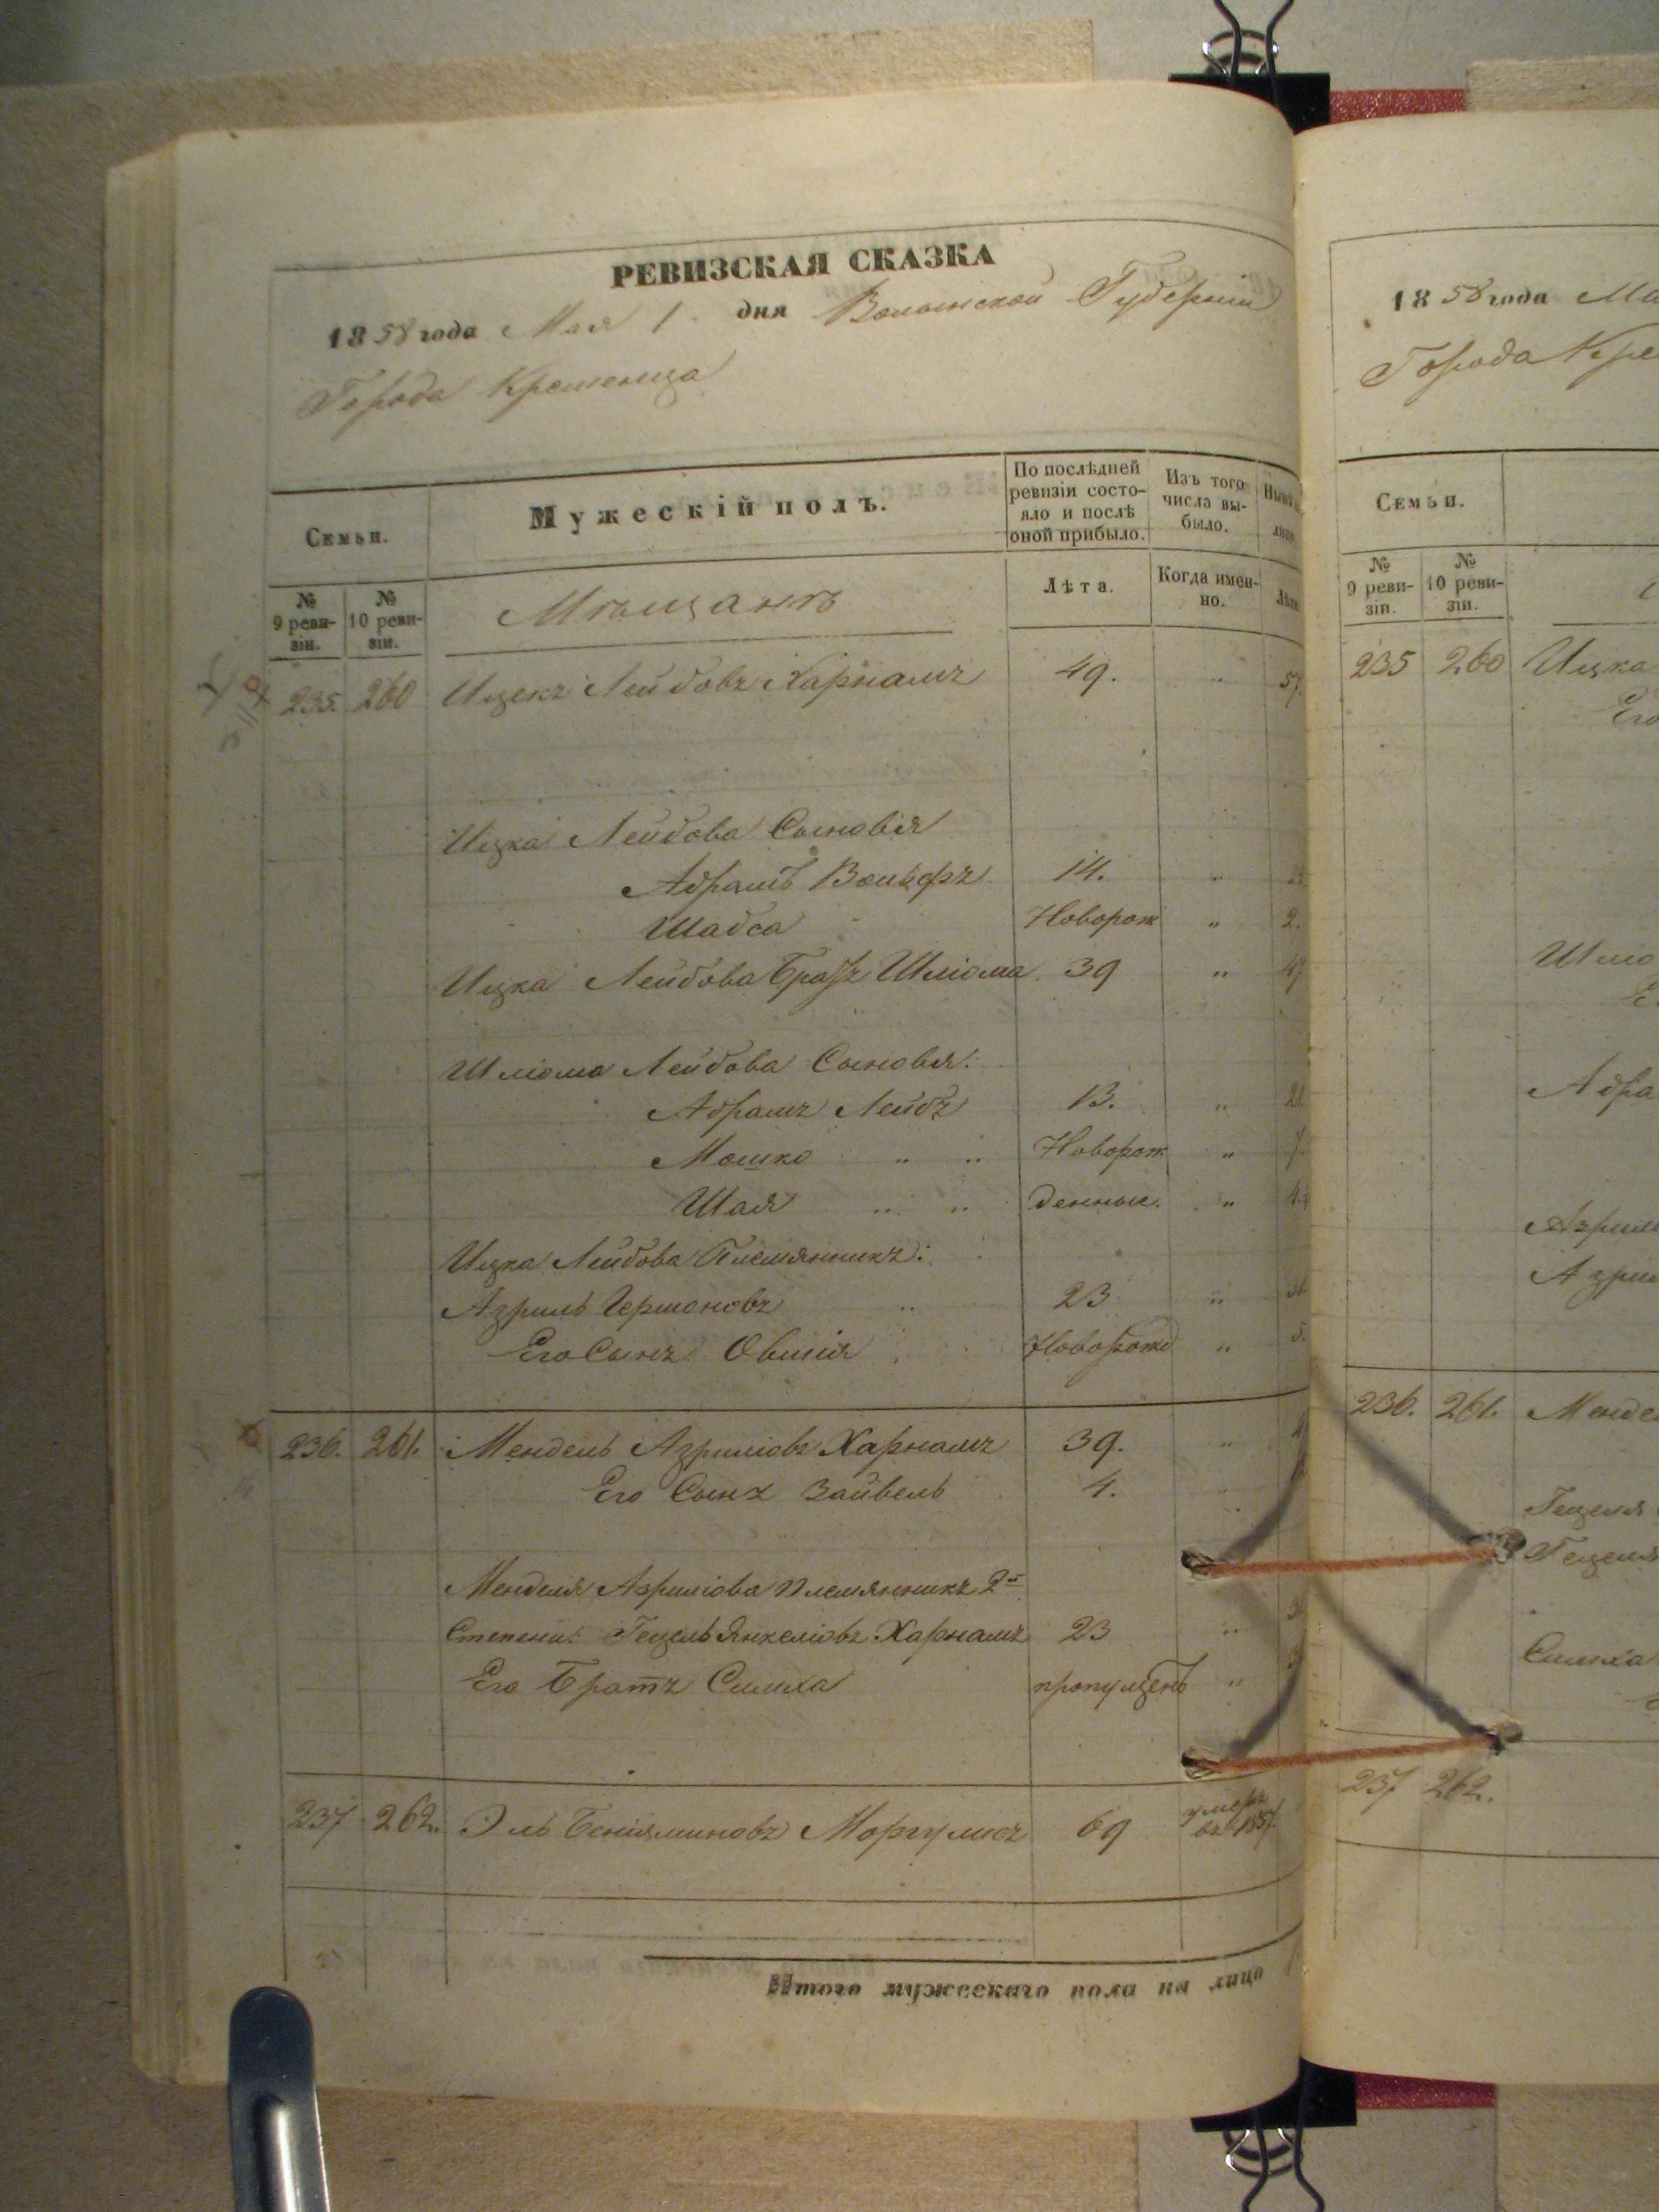 РЕВИЗСКАЯ СКАЗКА
1858 года Мая 1 дня Волынской Губерніи
Города Кременца
Семьи.
Мужескій полъ.
По послѣдней ревизіи состо-
яло и послѣ
оной прибыло.
Изъ того
числа вы-
было.
№
9 реви-
зіи.
№
10 реви-
зіи.
Мѣщанъ
Лѣта.
Когда имен-
но.
235. 260 Ицекъ Лейбовъ Харнамъ 49. " 57.
Ицка Лейбова Сыновья
Абрамъ Вольфъ 14. "
Шабса Новорож " 2.
Ицка Лейбова Братъ Шліома 39 " 47
Шліома Лейбова Сыновья:
Абрамъ Лейбъ 13. " 21.
Мошко " " Новорож " 7
Шая " " денные. " 4.
Ицка Лейбова Племянникъ:
Азриль Гершоновъ " 23 " 31.
Его Сынъ Овшія Новорожд " 5.
236. 261. Мендель Азриліовъ Харнамъ 39. "
Его Сынъ Зайвель 4. "
Менделя Азриліова Племянникъ 2й
Степени: Гецель Янкеліовъ Харнамъ 23 "
Его Братъ Симха пропущенъ "
237 262. Эль Беніяминовъ Моргулисъ 69 умеръ
въ 1857.
Итого мужескаго пола на лицо
1858 года Ма
Города Кре
Семьи.
№
9 реви-
зіи.
№
10 реви-
зіи.
235 260 Ицка
Его
Шліо
Абра
Азрил
Азри
236. 261. Менде
Гецеля
Гецеля
Симха
237 262.